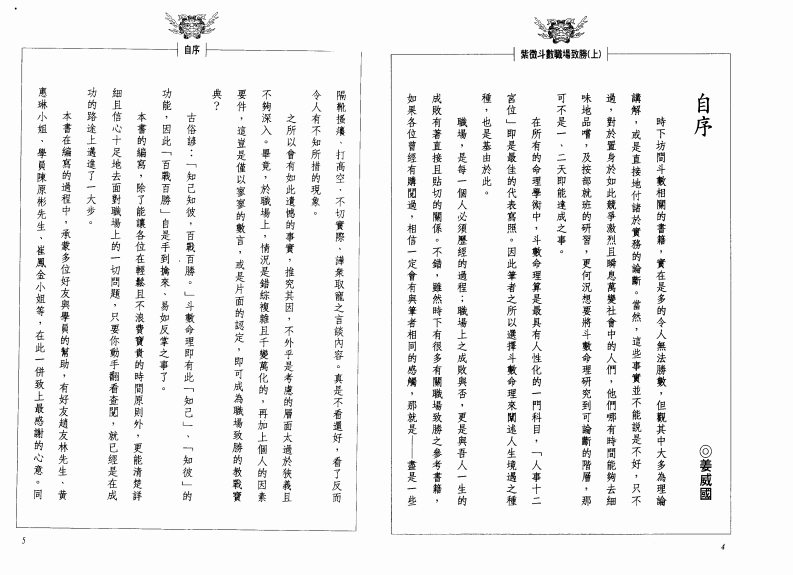 紫微斗數職場致勝(上)
自序
◎姜威國
時下坊間斗數相關的書籍，實在是多的令人無法勝數，但觀其中大多為理論
講解，或是直接地付諸於實務的論斷。當然，這些事實並不能說是不好，只不
過，對於置身於如此競爭激烈且瞬息萬變社會中的人們，他們哪有時間能夠去細
味地品嚐，及按部就班的研習，更何況想要將斗數命理研究到可論斷的階層，那
可不是一、二天即能達成之事。
在所有的命理學術中，斗數命理算是最具有人性化的一門科目，「人事十二
宮位」即是最佳的代表寫照。因此筆者之所以選擇斗數命理來闡述人生境遇之種
種，也是基由於此。
職場，是每一個人必須歷經的過程；職場上之成敗與否，更是與吾人一生的
成敗有著直接且貼切的關係。不錯，雖然時下有很多有關職場致勝之參考書籍，
如果各位曾經有購閱過，相信一定會有與筆者相同的感觸，那就是——盡是一些
4
自序
隔靴搔癢、打高空、不切實際、譁衆取寵之言談內容。真是不看還好，看了反而
令人有不知所措的現象。
之所以會有如此遺憾的事實，推究其因，不外乎是考慮的層面太過於狹義且
不夠深入。畢竟，於職場上，情況是錯綜複雜且千變萬化的，再加上個人的因素
要件，這豈是僅以寥寥的數言，或是片面的認定，即可成為職場致勝的教戰寶
典？
古俗諺：「知己知彼，百戰百勝。」斗數命理即有此「知己」、「知彼」的
功能，因此「百戰百勝」自是手到擒來、易如反掌之事了。
本書的編寫，除了能讓各位在輕鬆且不浪費寶貴的時間原則外，更能清楚詳
細且信心十足地去面對職場上的一切問題，只要你動手翻看查閱，就已經是在成
功的路途上邁進了一大步。
本書在編寫的過程中，承蒙多位好友與學員的幫助，有好友趙友林先生、黃
惠琳小姐、學員陳原彬先生、崔鳳金小姐等，在此一併致上最感謝的心意。同
5